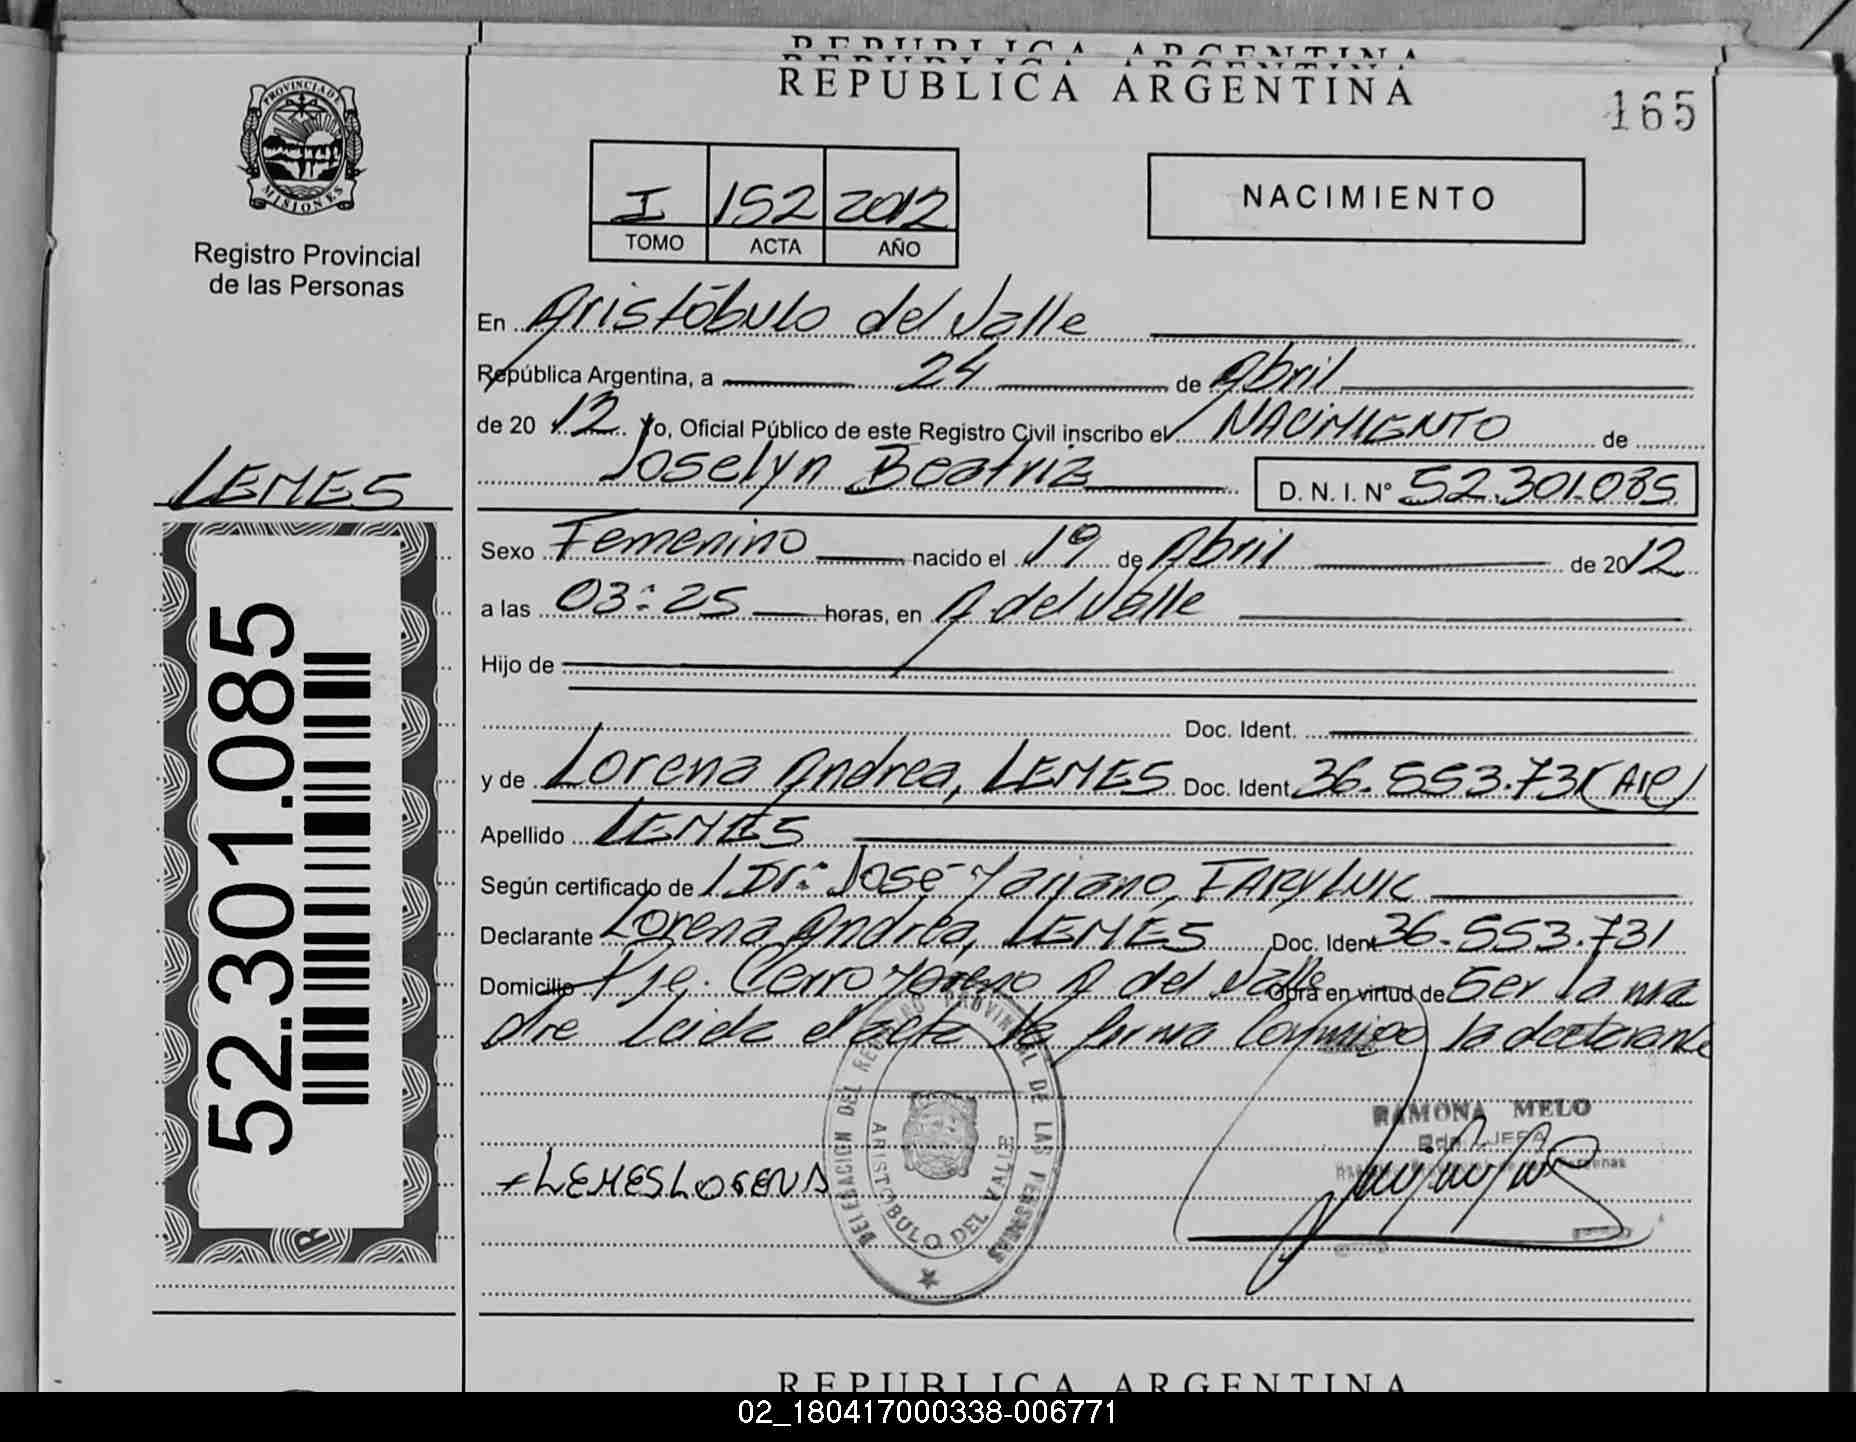 REPUBLICA ARGENTINA
REPUBLICA ARGENTINA
165
PROVINCIA DE
MISIONES
Registro Provincial
de las Personas
I 152 2012
TOMO ACTA AÑO
NACIMIENTO
En Aristóbulo del Valle
República Argentina, a 24 de Abril
de 20 12 Yo, Oficial Público de este Registro Civil inscribo el NACIMIENTO de
Joselyn Beatriz D. N. I. Nº 52.301.085
LEMES
Sexo Femenino nacido el 19 de Abril de 2012
a las 03:25 horas, en A. del Valle
Hijo de
Doc. Ident.
y de Lorena Andrea, LEMES Doc. Ident 36.553.731
Apellido LEMES
Según certificado de Dr. José
Declarante Lorena Andrea, LEMES Doc. Ident 36.553.731
Domicilio Pje. Cerro Moreno A del Valle Obra en virtud de Ser la ma
dre Leida el acta la firma Conmigo la declarante
52.301.085
DELEGACION DEL REGISTRO PROVINCIAL DE LAS PERSONAS
ARISTOBULO DEL VALLE
RAMONA MELO
LEMES LORENA
REPUBLICA ARGENTINA
02_180417000338-006771